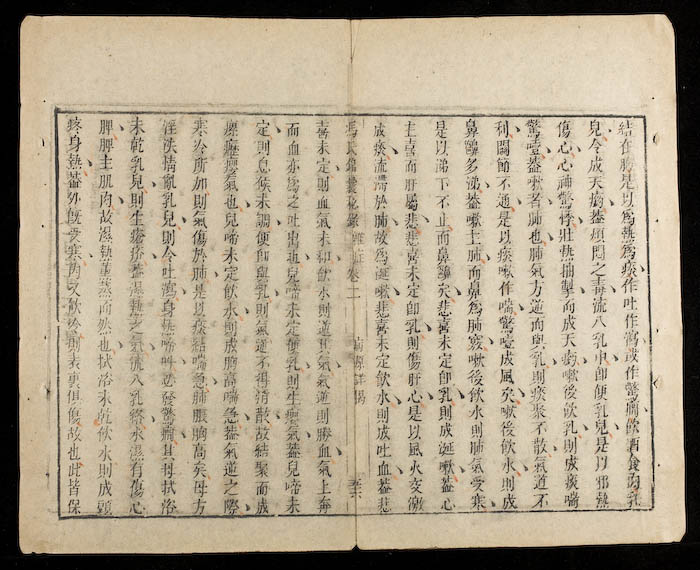 結在腸是以爲熱爲痰作吐作瀉或作驚癇飲酒食肉乳
兒令成天瘹蓋煩悶之毒流入乳中即便乳兒是以邪熱
傷心心神驚悸壯熱搐掣而成天瘹嗽後飲乳則成痰喘
驚噎蓋嗽者肺也肺氣方逆而與乳則痰聚不散氣道不
利關節不通是以痰嗽作喘驚噎成風矣嗽後飲水則成
鼻齆多涕蓋嗽主肺而鼻爲肺竅嗽後飲水則肺氣受寒
是以涕下不止而鼻齆矣悲喜未定即乳則成涎嗽蓋心
主喜而肝屬悲悲喜未定即乳則傷肝心是以風火交激
成痰流滯於肺故爲涎嗽悲喜未定飲水則成吐血蓋悲
馮氏錦囊秘錄 雜症卷二 病源詳揭
喜未定則血氣未和飲水則逆其氣氣逆則勝血氣上奔
而血亦爲之吐出也兒啼未定便乳則生癭氣蓋兒啼未
定則息候未調便即與乳則氣逆不得消散故結聚而成
癭癭氣也兒啼未定飲水則成胸高喘急蓋氣道之際
寒冷所加則氣傷於肺是以痰結喘急肺脹胸高矣母方
淫泆情亂乳兒則令吐瀉身熱啼叫必發驚癇其母拭浴
未乾乳兒則生瘡疥蓋濕熱之氣流入乳絡水濕有傷心
脾脾主肌肉故濕熱薰蒸而然也拭浴未乾飲水則成頭
疼身熱蓋外旣受寒內又飲冷則表裏俱傷故也此皆保